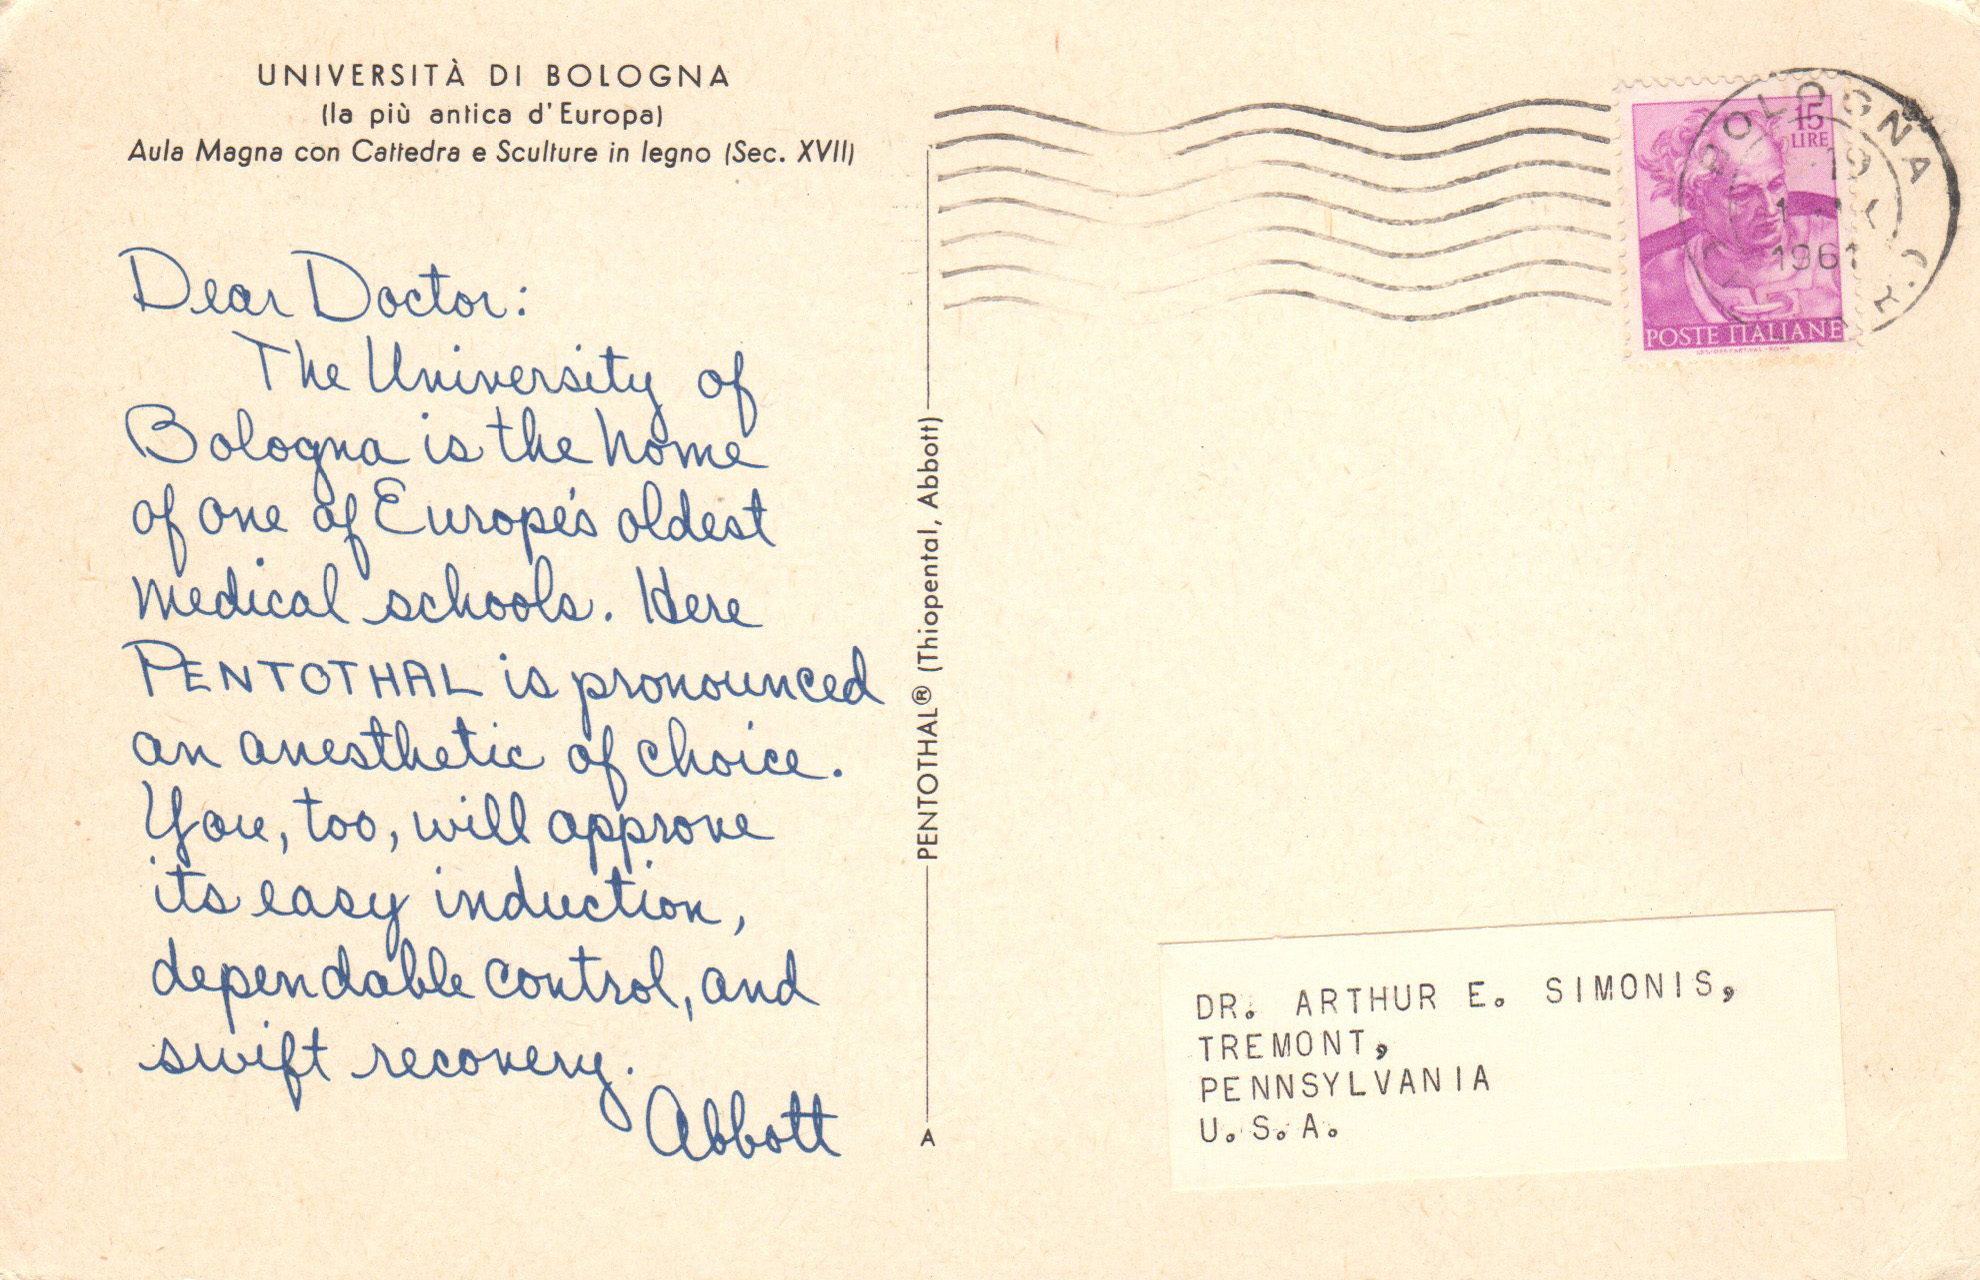 UNIVERSITÀ DI BOLOGNA
(la più antica d'Europa)
Aula Magna con Cattedra e Sculture in legno (Sec. XVII)
Dear Doctor:
The University of
Bologna is the home
of one of Europe's oldest
medical schools. Here
PENTOTHAL is pronounced
an anesthetic of choice.
You, too, will approve
its easy induction,
dependable control, and
swift recovery.
Abbott
PENTOTHAL® (Thiopental, Abbott)
A
15
LIRE
POSTE ITALIANE
BOLOGNA
19
1961
DR. ARTHUR E. SIMONIS,
TREMONT,
PENNSYLVANIA
U.S.A.